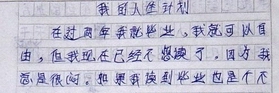 我的人生计划
在过两年我就毕业，我就可以自
由，但我现在已经不想读了，因为我
总是很闷。如果我读到毕业也是个不